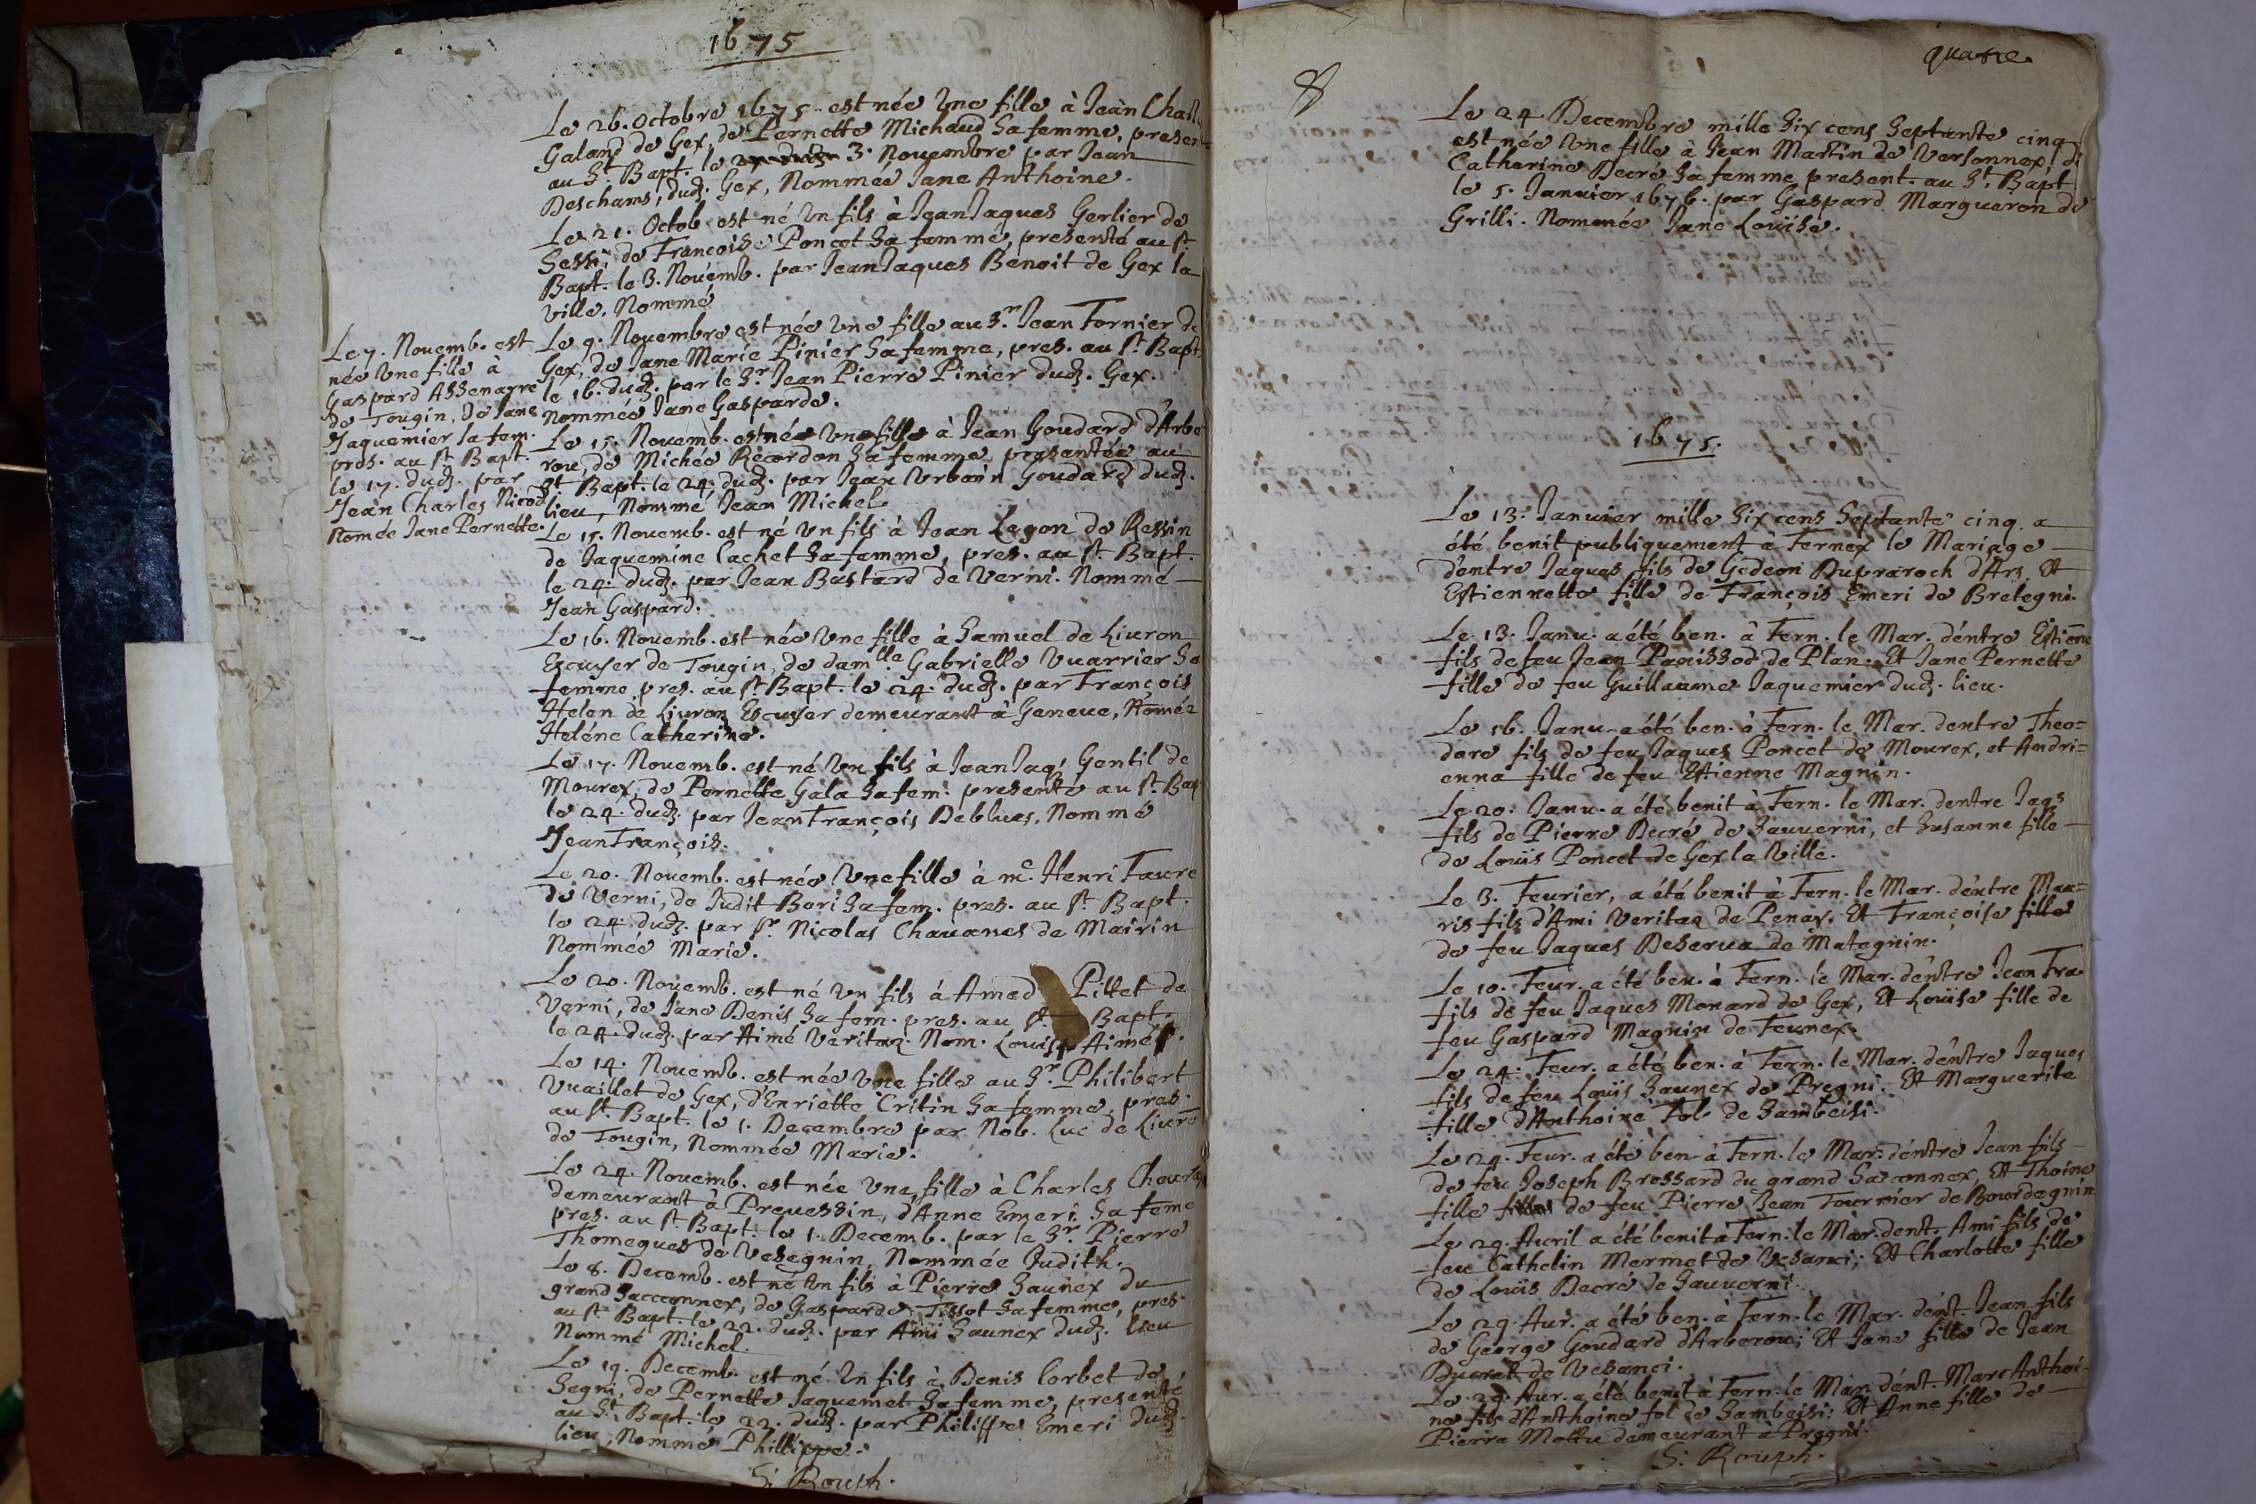 1675
Le 26. Octobre 1675. est née Une fille à Jean
Galand de Gex, de Pernette Michaud Sa femme, present
au St. Bapt. le 3. Nouembre par Jean
Deschams, dud. Gex, Nommée Jane Anthoine.
Le 21. Octob. est né Un fils à Jean Jaques Gerlier de
de Françoise Poncet Sa femme, presenté au St.
Bapt. le 3. Nouemb. par Jean Jaques Benoit de Gex la
ville, Nommé
Le 9. Nouembre est née Une fille au Sr. Jean Fornier de
Gex, de Jane Marie Pinier Sa femme, pres. au St. Bapt.
le 16. dud. par le Sr. Jean Pierre Pinier dud. Gex.
Nommée Jane Gasparde.
Le 7. Nouemb. est
née Une fille à
Gaspard Assenayre
de Tougin, de Jane
Jaquemier sa fem.
pres. au St Bapt.
le 17. dud. par
Jean Charles Nicod
Nomée Jane Pernette.
Le 15. Nouemb. est née Une fille à Jean Goudard d'Arbe
rou, de Michée Recordon Sa femme, presentée au
St Bapt. le 24. dud. par Jean Urbain Goudard dud.
lieu, Nommé Jean Michel
Le 15. Nouemb. est né Un fils à Jean Legon de Ressin
de Jaquemine Cachet Sa femme, pres. au St. Bapt.
le 24. dud. par Jean Bastard de Verni. Nommé
Jean Gaspard.
Le 16. Nouemb. est née Une fille à Samuel de Liuron
Escuyer de Tougin, de damlle Gabrielle Vuarrier Sa
femme, pres. au St Bapt. le 24. dud. par François
Helen de Liuron Escuyer demeurant à Geneue, Nomée
Heléne Catherine.
Le 17. Nouemb. est né Un fils à Jean Jaq. Gentil de
Mourex, de Pernette Gala Sa fem. presenté au St. Bap
le 24. dud. par Jean François Deblues. Nommé
Jean François.
Le 20. Nouemb. est née Une fille à me. Henri Faure
de Verni, de Judit Bori Sa fem. pres. au St. Bapt.
le 24. dud. par Sr. Nicolas Chauanes de Mairin
Nommée Marie.
Le 20. Nouemb. est né Un fils à Amed Pittet de
Verni, de Jane Denis Sa fem. pres. au St. Bapt.
le 24. dud. par Aimé Veritaz. Nom. Louis Aimé.
Le 14. Nouemb. est née Une fille au Sr. Philibert
Vuaillet de Gex, d'Enriette Critin Sa femme, pres.
au St. Bapt. le 1. Decembre par Nob. Luc de Liuro
de Tougin, Nommée Marie.
Le 24. Nouemb. est née Une fille à Charles
demeurant à Preuessin, d'Anne Emeri Sa feme
pres. au St. Bapt. le 1. Decemb. par le Sr. Pierre
Thomegues de Vesegnin, Nommée Judith.
Le 8. Decemb. est né Un fils à Pierre Saunex du
grand Sacconnex, de Gasparde Tissot Sa femme, pres.
au St. Bapt. le 22. dud. par Ami Saunex dud. lieu
Nommé Michel.
Le 19. Decemb. est né Un fils à Denis Corbet de
Segni, de Pernette Jaquemet Sa femme, presenté
au St. Bapt. le 22. dud. par Philippe Emeri dud.
lieu, Nommé Phillippe.
S. Rouph.
quatre
8
Le 24. Decembre mille Six cens Septante cinq
est née Une fille à Jean Martin de Versonnex, de
Catherine Decré Sa femme present. au St. Bapt
le 5. Januier 1676. par Gaspard Margueron de
Grilli. Nommée Jane Louïse.
1675.
Le 13. Januier mille Six cens Septante cinq a
été benit publiquement à Fernex le Mariage
d'entre Jaques fils de Gedeon Dupraroch d'Ars. Et
Estiennette fille de François Emeri de Bretegni.
Le 13. Janu. a été ben. à Fern. le Mar. d'entre Estiene
fils de feu Jean Panissod de Plan. Et Jane Pernette
fille de feu Guillaume Jaquemier dud. lieu.
Le 16. Janu. a été ben. à Fern. le Mar. dentre Theo=
dore fils de feu Jaques Poncet de Mourex, et Andri=
enna fille de feu Estienne Magnin.
Le 20. Janu. a été benit à Fern. le Mar. dentre Jaqs
fils de Pierre Decré de Sauuerni, et Susanne fille
de Louïs Poncet de Gex la Ville.
Le 3. Feurier, a été benit à Fern. le Mar. d'entre Mau=
ris fils d'Ami Veritaz de Penay. Et Françoise fille
de feu Jaques Deserua de Mategnin.
Le 10. Feur. a été ben. à Fern. le Mar. d'entre Jean Fra.
fils de feu Jaques Monard de Gex, Et Louïse fille de
feu Gaspard Magnin de Feunex.
Le 24. Feur. a été ben. à Fern. le Mar. d'entre Jaques
fils de feu Louïs Saunex de Pregni. Et Marguerite
fille d'Anthoine Fol de Sambeisi.
Le 24. Feur. a été ben à Fern. le Mar. d'entre Jean fils
de feu Joseph Brossard du grand Saconnex, Et Thoine
fille fille de feu Pierre Jean Tournier de Bourdegnin
Le 29. Auril a été benit à Fern. le Mar. dent. Ami fils de
feu Cathelin Mermet de Vesanci; Et Charlotte fille
de Louïs Decré de Sauuerni.
Le 29. Aur. a été ben. à Fern. le Mar. dént. Jean fils
de George Goudard d'Arberou; Et Jane fille de Jean
Ducret de Vesanci.
Le 29. Aur. a été benit à Fern. le Mar. dént. Marc Anthoi-
ne fils d'Anthoine fol de Sambeisi; Et Anne fille de
Pierre Mottu demeurant à Pregni.
S. Rouph.